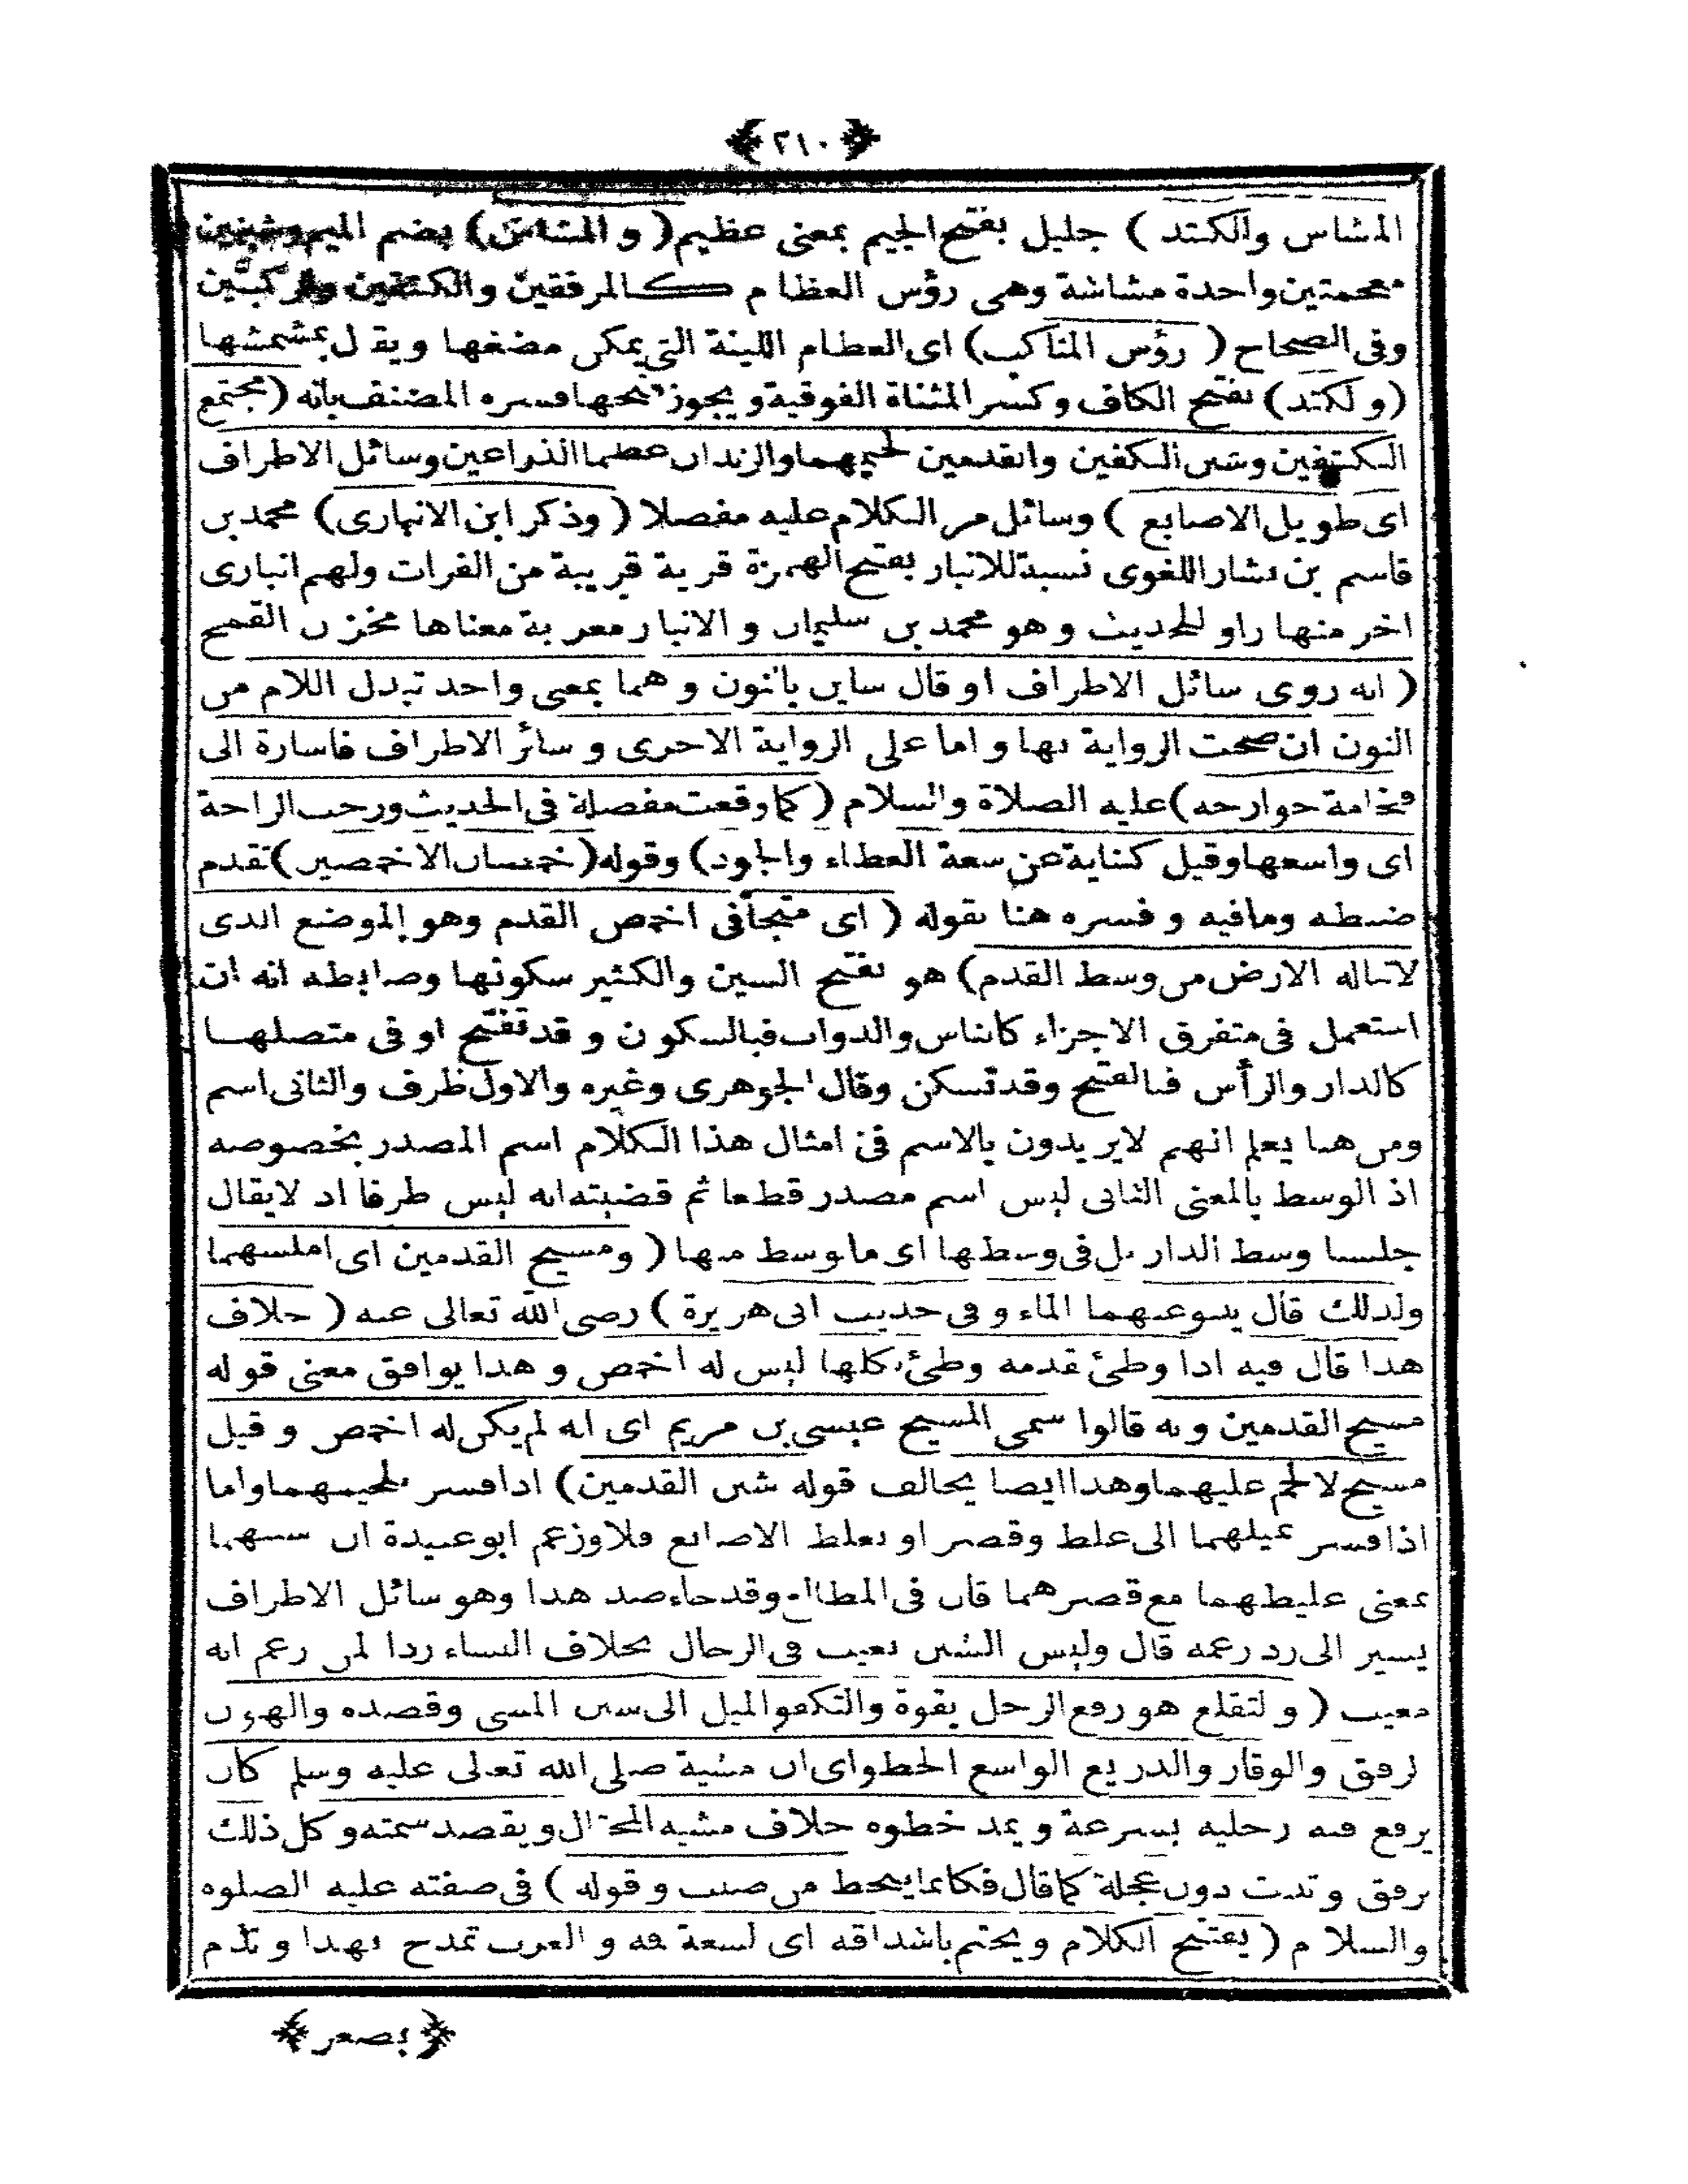 ﴿٢١٠﴾
المشاس والكتد ) جليل بفتح الجيم بمعنى عظيم ( والمشاش ) بضم الميم وشينين
معجمتين واحدة مشاشة وهى رؤس العظام كالمرفقين والكتفين والركبتين
وفى الصحاح ( رؤس المناكب ) اى العظام اللينة التى يمكن مضغها ويقال يمشمشها
( والكتد ) بفتح الكاف وكسر المثناة الفوقية ويجوز فتحها فسره المصنف بانه ( مجتمع
الكتفين وشثن الكفين والقدمين لحيمهما والزندان عظما الذراعين وسائل الاطراف
اى طويل الاصابع ) وسائل مر الكلام عليه مفصلا ( وذكر ابن الانبارى ) محمد بن
قاسم بن بشار اللغوى نسبة للانبار بفتح الهمزة قرية قريبة من الفرات ولهم انبارى
اخر منها راو للحديث وهو محمد بن سليمان والانبار معربة معناها مخزن القمح
( انه روى سائل الاطراف او قال ساين بالنون وهما بمعنى واحد تبدل اللام من
النون ان صحت الرواية بها واما على الرواية الاخرى وسائر الاطراف فاشارة الى
فخامة جوارحه ) عليه الصلاة والسلام ( كما وقعت مفصلة فى الحديث ورحب الراحة
اى واسعها وقيل كناية عن سعة العطاء والجود ) وقوله ( خمصان الاخمصين ) تقدم
ضبطه ومافيه وفسره هنا بقوله ( اى متجافى اخمص القدم وهو الموضع الذى
لاتناله الارض من وسط القدم ) هو بفتح السين والكثير سكونها وضابطه انه ان
استعمل فى متفرق الاجزاء كالناس والدواب فبالسكون وقد تفتح او فى متصلها
كالدار والرأس فبالفتح وقد تسكن وقال الجوهرى وغيره والاول ظرف والثانى اسم
ومن هنا يعلم انهم لايريدون بالاسم فى امثال هذا الكلام اسم المصدر بخصوصه
اذ الوسط بالمعنى الثانى ليس اسم مصدر قطعا ثم قضيته انه ليس ظرفا اذ لايقال
جلسنا وسط الدار بل فى وسطها اى ماتوسط منها ( ومسيح القدمين اى املسهما
ولذلك قال ينبو عنهما الماء وفى حديث ابى هريرة ) رضى الله تعالى عنه ( خلاف
هذا قال فيه اذا وطئ بقدمه وطئ بكلها ليس له اخمص وهذا يوافق معنى قوله
مسيح القدمين وبه قالوا سمى المسيح عيسى بن مريم اى انه لم يكن له اخمص وقيل
مسيح لالحم عليهما وهذا ايضا يخالف قوله شثن القدمين ) اذا فسر بلحيمهما واما
اذا فسر بميلهما الى غلظ وقصر او بغلظ الاصابع فلا وزعم ابو عبيدة ان شثنهما
بمعنى غليظهما مع قصرهما قال فى المطالع وقد جاء ضد هذا وهو سائل الاطراف
يشير الى رد زعمه قال وليس الشثن بعيب فى الرجال بخلاف النساء ردا لمن زعم انه
معيب ( والتقلع هو رفع الرجل بقوة والتكفؤ الميل الى سنن المشى وقصده والهون
الرفق والوقار والذريع الواسع الخطو اى ان مشيه صلى الله تعالى عليه وسلم كان
يرفع فيه رجليه بسرعة ويمد خطوه خلاف مشية المختال ويقصد سمته وكل ذلك
برفق وتثبت دون عجلة كما قال فكانما ينحط من صبب وقوله ) فى صفته عليه الصلوه
والسلام ( يفتتح الكلام ويختم باشداقه اى لسعة فمه والعرب تمدح بهذا وتذم
﴿ بصغر ﴾